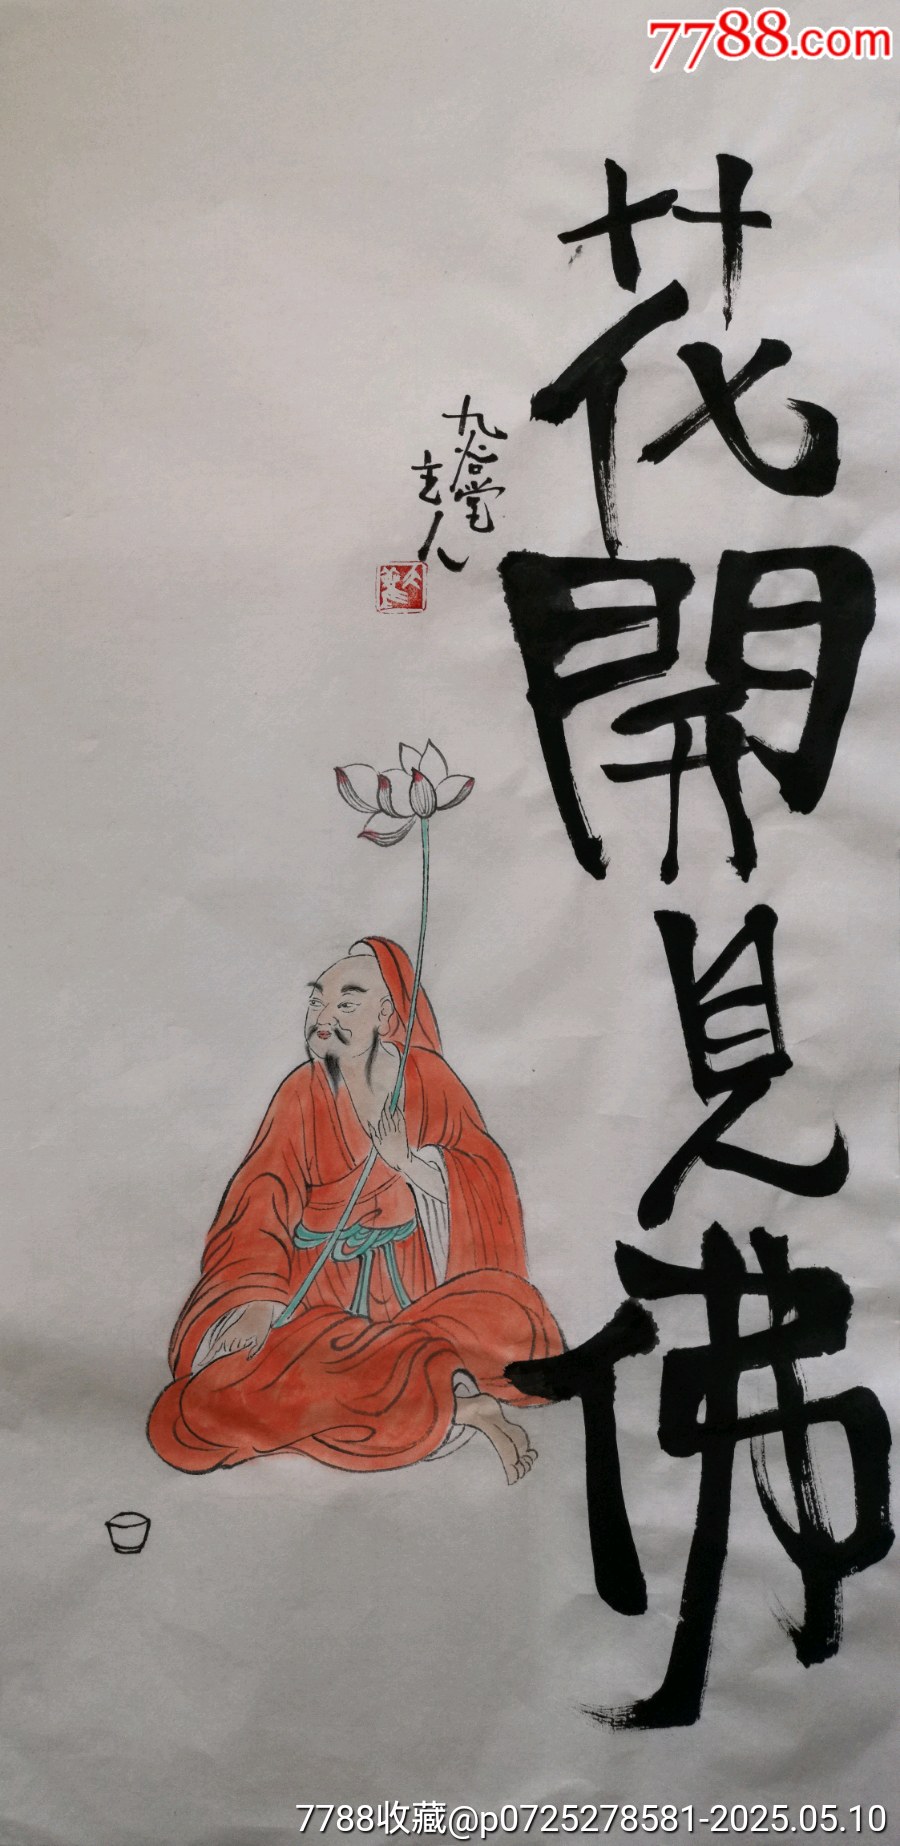 7788.com
花開見佛
九谷堂
主人
7788收藏@p0725278581-2025.05.10